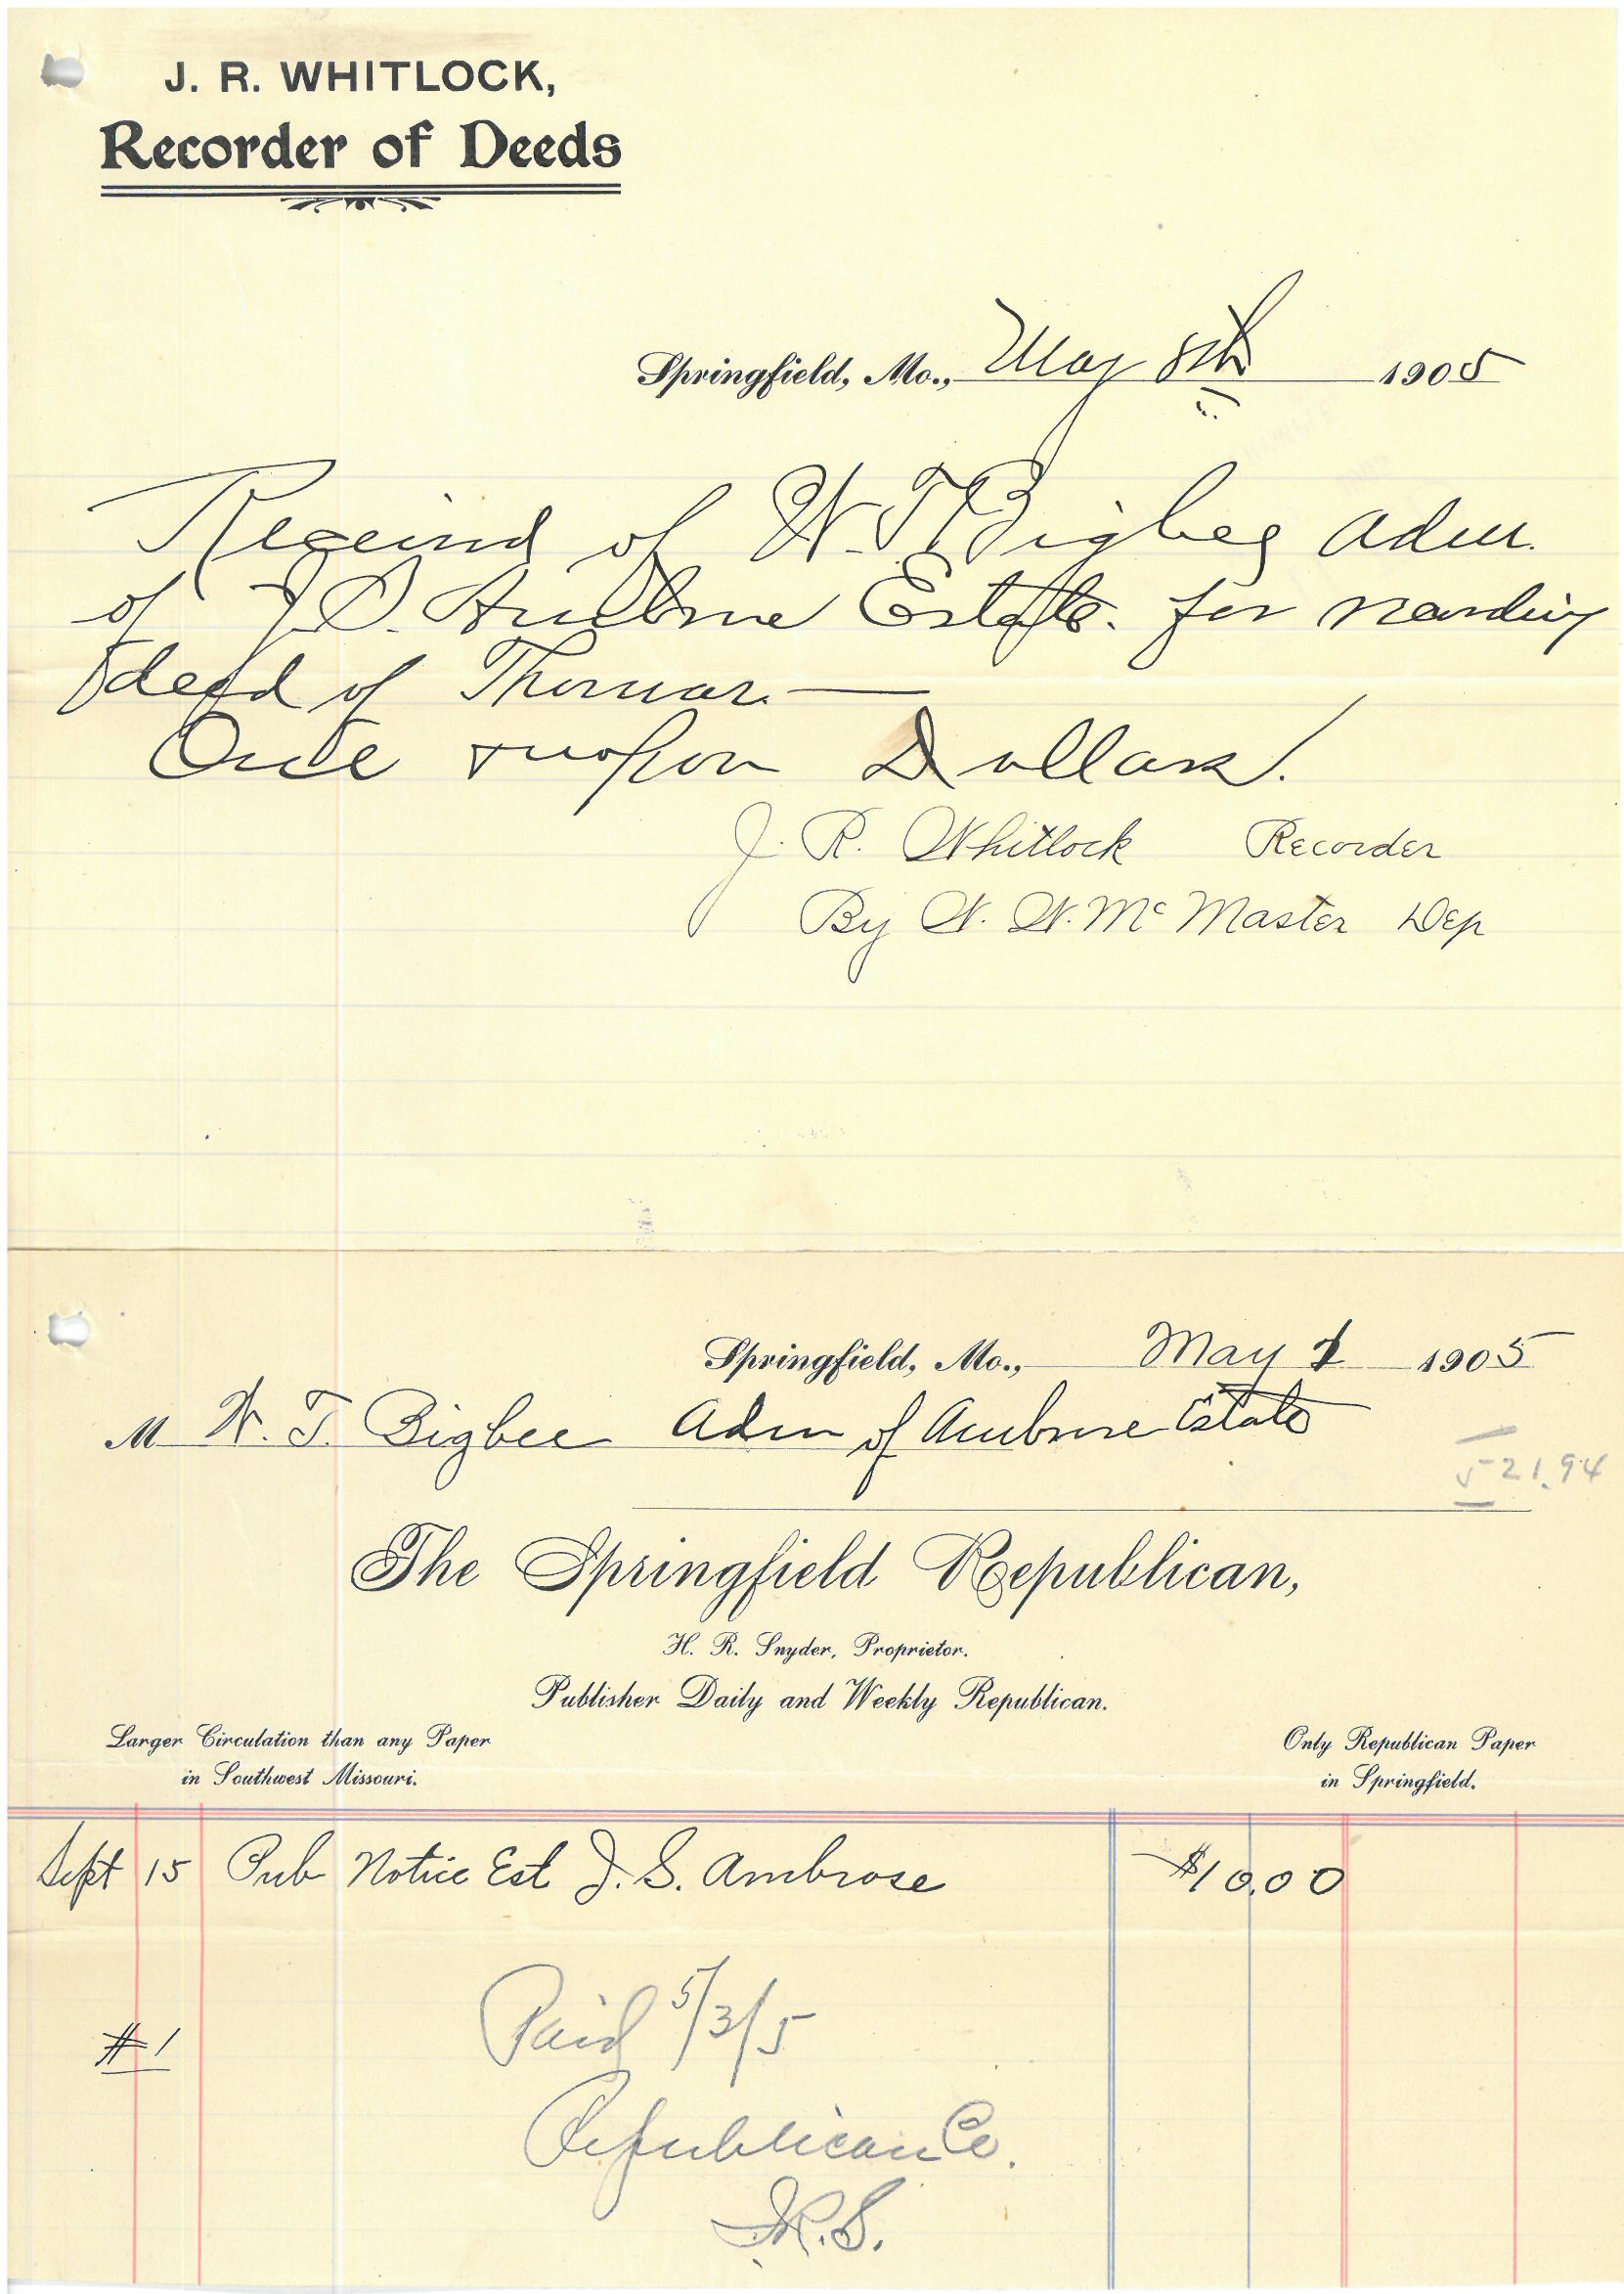 J. R. WHITLOCK,
Recorder of Deeds
Springfield, Mo., May 8th 1905
Received of W. T. Bigbee Adm.
of J. S. Ambrose Estate. for recording
deed of Thomas
One Dollars.
J. R. Whitlock Recorder
By W. W. McMaster Dep
Springfield, Mo., May 1 1905
M W. T. Bigbee Adm of Ambrose Estate
21.94
The Springfield Republican,
H. R. Snyder, Proprietor.
Publisher Daily and Weekly Republican.
Larger Circulation than any Paper
in Southwest Missouri.
Only Republican Paper
in Springfield.
Sept 15 Pub Notice Est J. S. Ambrose $10.00
Paid 5/3/5
#1
Republican Co.